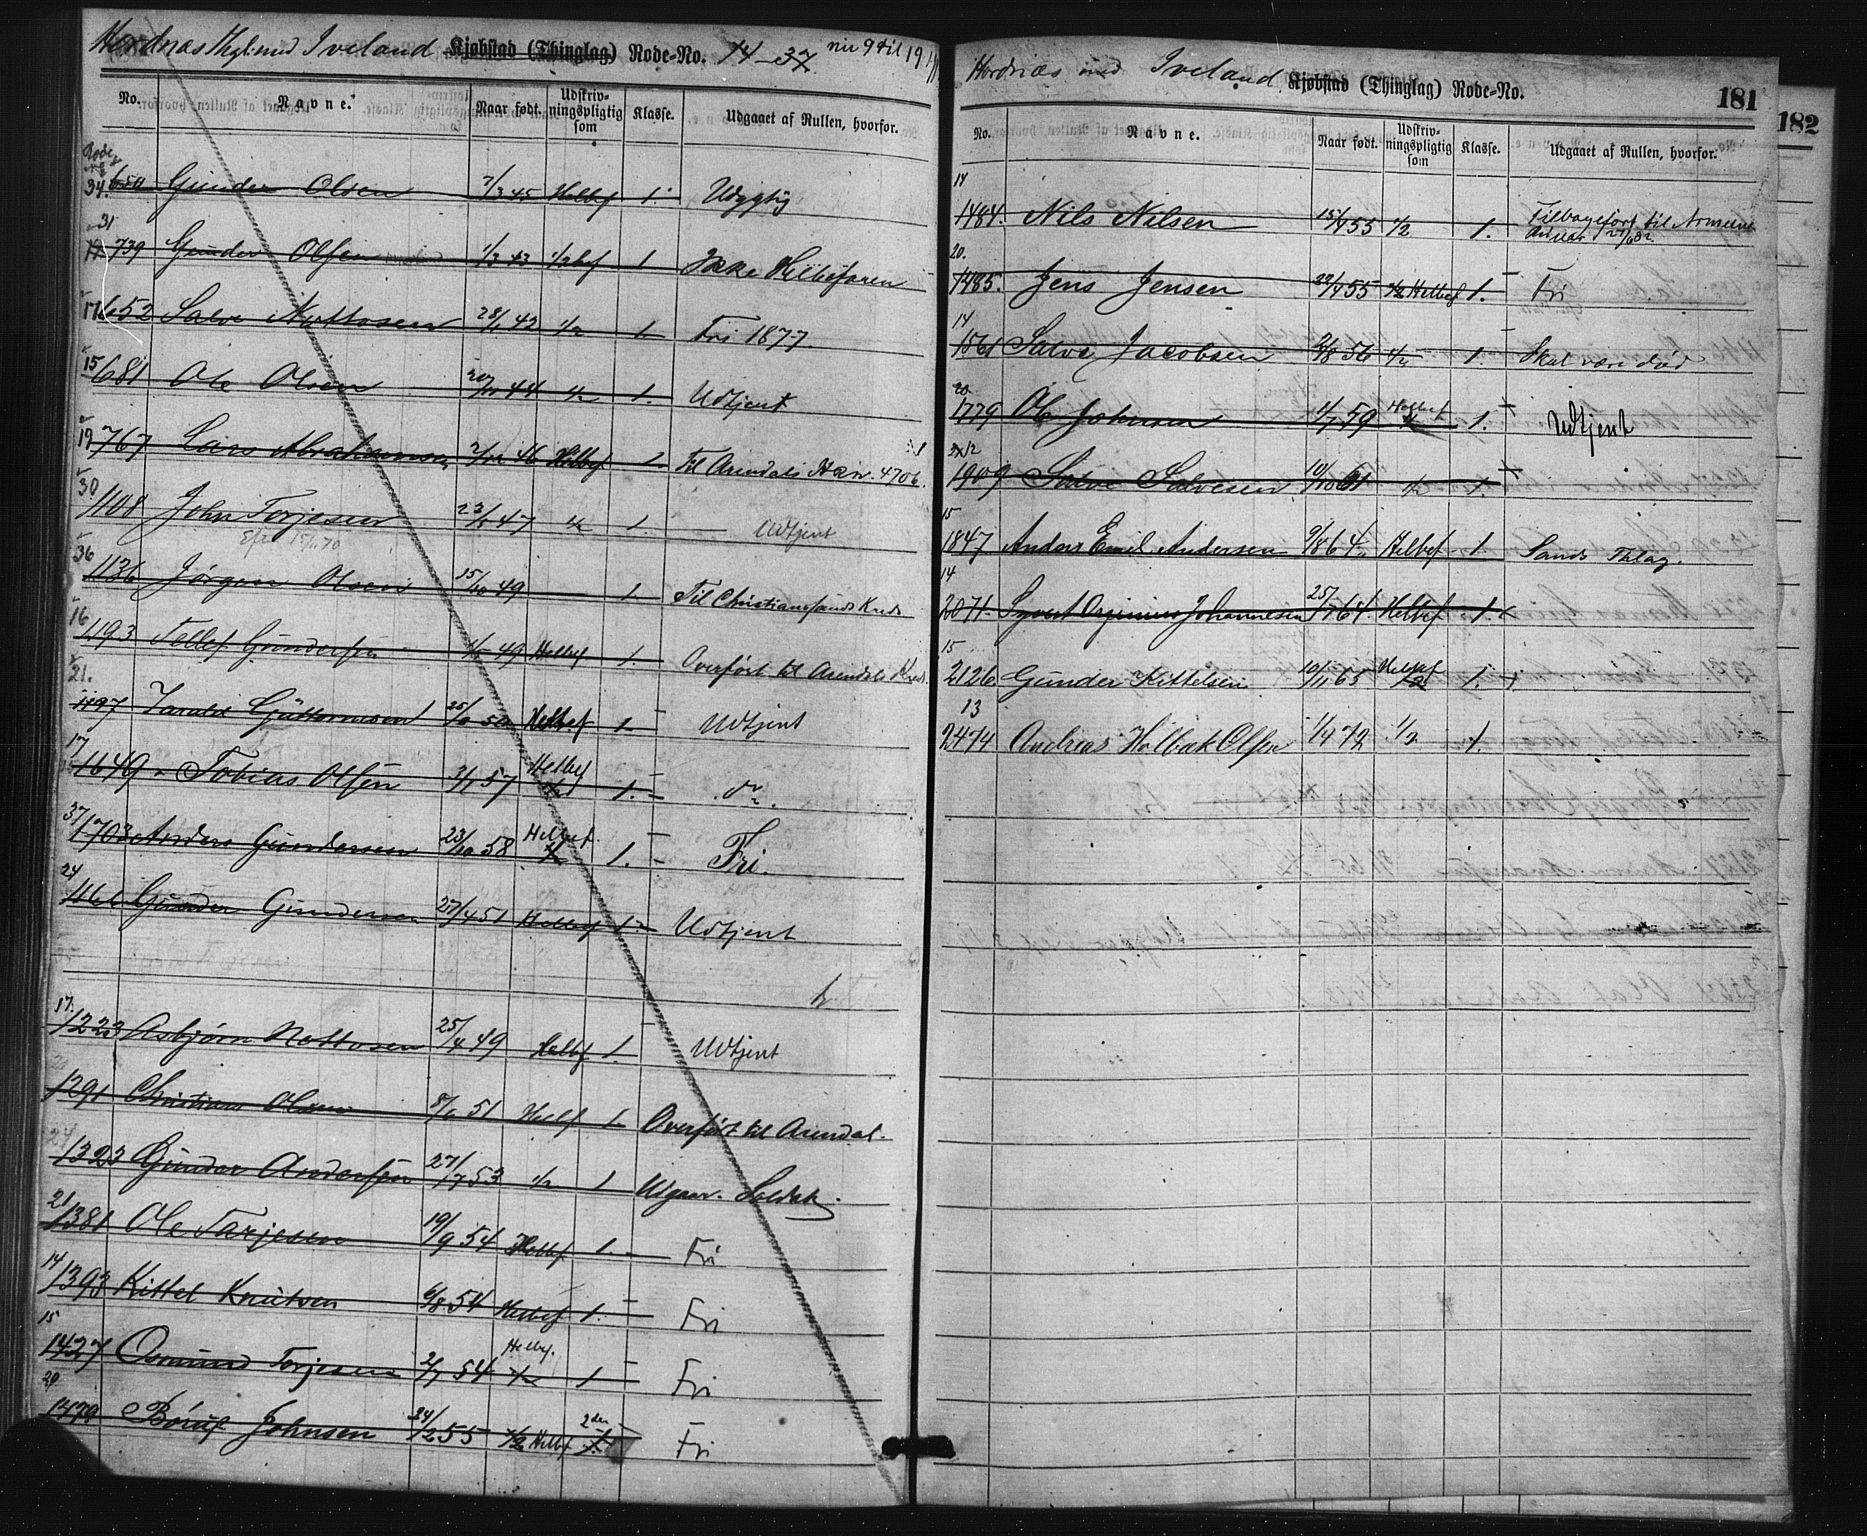 Hordnæs Thgl. med Iveland Kjøbstad (Thinglag) Rode-No. 14-37 nu 9 til 19
No. Navne. Naar født. Udskrivningspligtig som Klasse. Udgaaet af Rullen, hvorfor.
34. 650 Gunder Olsen 7/3 45 Helbef 1. Udygtig
31
739 Gunder Olsen 1/3 43 1/2bef 1 Ikke Helbefaren
17 652 Salve Nottosen 28/1 42 1/2 1. Fri 1877.
15 681 Ole Olsen 44 1/2 1. Udtjent
19 767 Lars Abrahamsen 46 Helbef 1. Til Arendals 4706.
30
1108 John Torjesen 23/5 47 1/2 1. Udtjent
36
1136 Jørgen Olsen 15/10 49 1 Til Christianssands Kreds
16
1193 Tellef Gundersen 49 Helbef 1. Overført til Arendals Kreds.
21.
1197 Tarald Guttormsen 25/ 50 Helbef 1. Udtjent
17
1649 Tobias Olsen 57 Helbef 1. do.
37
1703 Anders Gundersen 23/10 58 Helbef 1. Fri.
24
1166 Gunder Gundersen 27/4 51 Helbef 1. Udtjent
17.
1223 Asbjørn Nottosen 25/4 49 Helbf 1. Udtjent
1291 Christians Olsen 8/6 51 Helbf 1. Overført til Arendal.
24
1323 Gunder Andersen 27/1 53 1/2 1 Udgaar. Soldat.
21
1381 Ole Tarjesen 19/9 54 Helbef 1. Fri
14
1393 Kittel Knutsen 6/8 54 Helbef 1. Fri
15
1427 Osmund Torjesen 2/7 54 Helbf. 1 Fri
20
1479 Børuf Johnsen 24/2 55 1/2 Helbf 2den 1. Fri
Hordnæs med Iveland Kjøbstad (Thinglag) Rode-No. 181
182
No. Navne. Naar født. Udskrivningspligtig som Klasse. Udgaaet af Rullen, hvorfor.
14
1484. Nils Nilsen 15/ 55 1/2 1. Tilbageført til Armeen
20.
1485. Jens Jensen 22/ 55 1/2 Helbef 1. Fri
14
1561 Salve Jacobsen 56 1/2 1. Skal være død
20
1779 Ole Johnsen 1/7 59 Helbef 1. Udtjent
1909 Salve Salvesen 10/10 61 1/2 1.
15
1847 Anders Emil Andersen 9/8 64. Helbef 1. Sands Thlag.
14
2071. Syvert Johannesen 25/ 64. Helbef 1.
15
2126 Gunder Kittelsen 19/11 65 Helbef 1/2 1.
13
2474 Andreas Holbæk Olsen 1/1 72 1/2 1